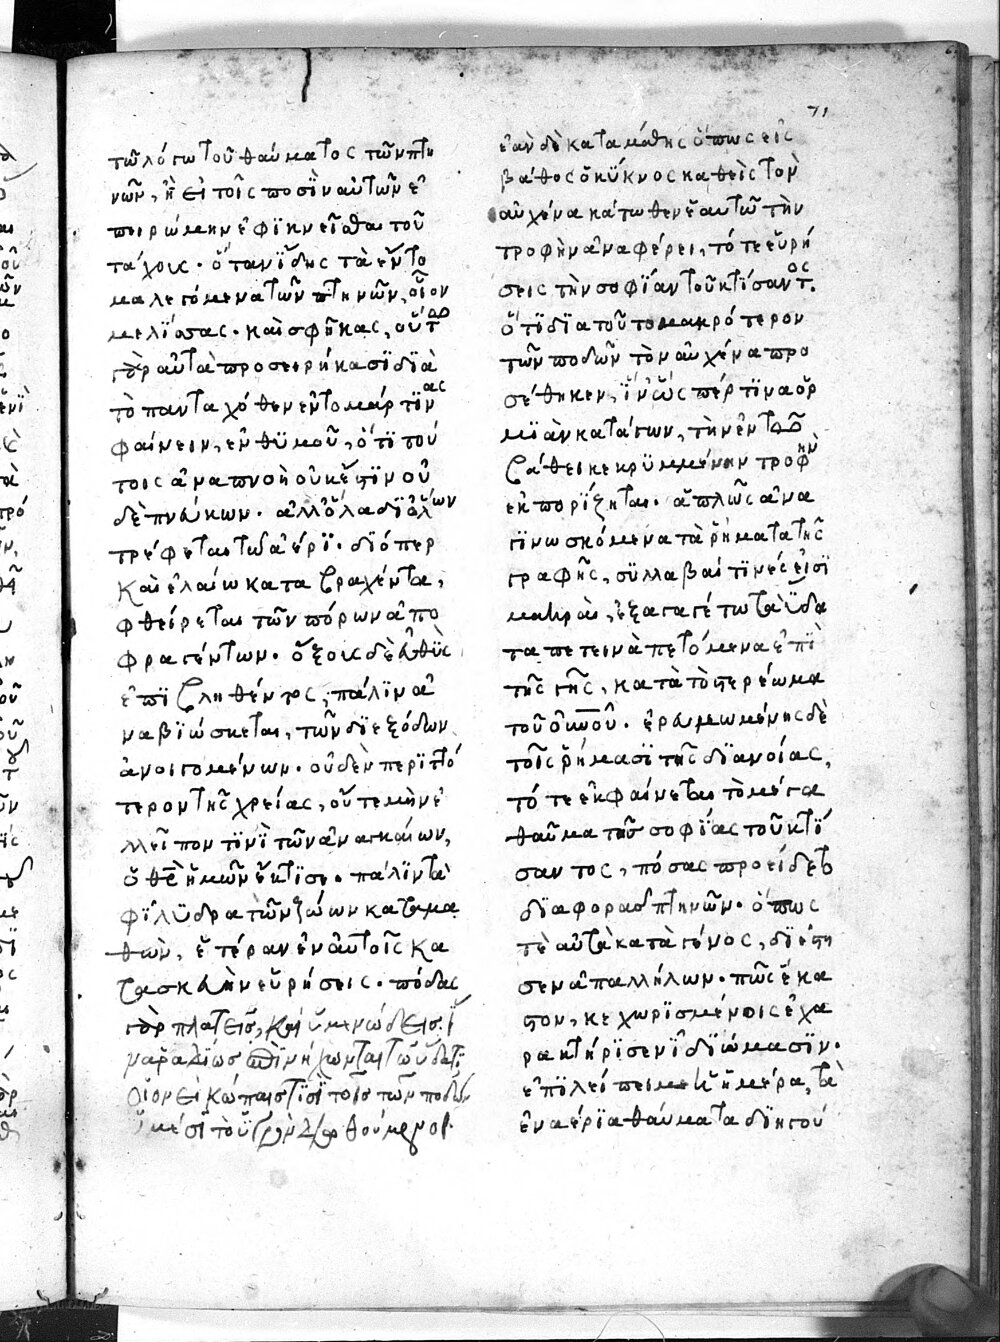 71
τῶ λόγω τοῦ θαύματος τῶν πτη
νῶν, ἢ εἰ τοῖς ποσὶν αὐτῶν ἐ
πειρώμην ἐφικνεῖσθαι τοῦ
τάχους. ὅταν ἴδης τὰ ἔντο
μα λεγόμενα τῶν πτηνῶν, οἷον
μελίσσας. καὶ σφῆκας, οὕτω
γὰρ αὐτὰ προσειρήκασϊ διὰ
τὸ πανταχόθεν ἐντομάς τϊνας
φαίνειν, ἐνθϋμοῦ, ὅτϊ τού
τοις ἀναπνοὴ οὐκ ἔστϊν οὐ
δὲ πνεύμων. ἀλλ ὅλα δϊ ὅλων
τρέφεται τῶ ἀέρϊ. διόπερ
καὶ ἐλαίω καταβραχέντα,
φθείρεται τῶν πόρων ἀπο
φραγέντων. ὄξους δὲ εὐθὺς
ἐπιβληθέντος, πάλϊν ἀ
ναβιώσκεται, τῶν διεξόδων
ἀνοιγομένων. οὐδὲν περιττό
τερον τῆς χρείας, οὔτε μὴν ἐ
λλεῖπον τϊνὶ τῶν ἀναγκαίων,
ὁ θεὸς ἡμῶν ἔκτϊσε. πάλϊν τὰ
φίλϋδρα τῶν ζώων καταμα
θὼν, ἑτέραν ἐν αὐτοῖς κα
τασκευὴν εὑρήσεις. πόδας
γὰρ πλατεῖς, καὶ ὑμενώδεις. ἵ
να ῥαδίως ἐπινήχωνται τῶ ὕδατϊ
οἷονεὶ κώπαις τϊσϊ τοῖς τῶν ποδῶν
ὑμέσϊ τὸ ὑγρὸν διωθούμενοι.
ἐὰν δὲ καταμάθης ὅπως εἰς
βάθος ὁ κύκνος καθεὶς τὸν
αὐχένα κάτωθεν ἑαυτῶ τὴν
τροφὴν ἀναφέρει, τότε εὑρή
σεις τὴν σοφίαν τοῦ κτίσαντος.
ὅτϊ διατοῦτο μακρότερον
τῶν ποδῶν τὸν αὐχένα προ
σέθηκεν, ἵν ὥσπέρ τϊνα ὁρ
μϊὰν κατάγων, τὴν ἐν τῶ
βάθει κεκρϋμμένην τροφὴν
ἐκπορίζηται. ἁπλῶς ἀνα
γϊνωσκόμενα τὰ ῥήματα τῆς
γραφῆς, σϋλλαβαί τϊνές εἰσϊ
μακραὶ, ἐξαγαγέτω τὰ ὕδα
τα πετεινὰ πετόμενα ἐπὶ
τῆς γῆς, κατὰ τὸ στερέωμα
τοῦ οὐνοῦ. ἐραυνωμένης δὲ
τοῖς ῥήμασϊ τῆς δϊανοίας,
τότε ἐκφαίνεται τὸ μέγα
θαῦμα τῆς σοφίας τοῦ κτί
σαντος, πόσας προείδετο
δϊαφορὰς πτηνῶν. ὅπως
τὲ αὐτὰ κατὰ γένος, διέστη
σεν ἀπαλλήλων. πῶς ἕκα
στον, κεχωρϊσμένοις ἐχα
ρακτήρϊσεν ἰδϊώμασϊν.
ἐπϊλείπει με ἡ ἡμέρα, τὰ
ἐναέρϊα θαύματα δϊηγού